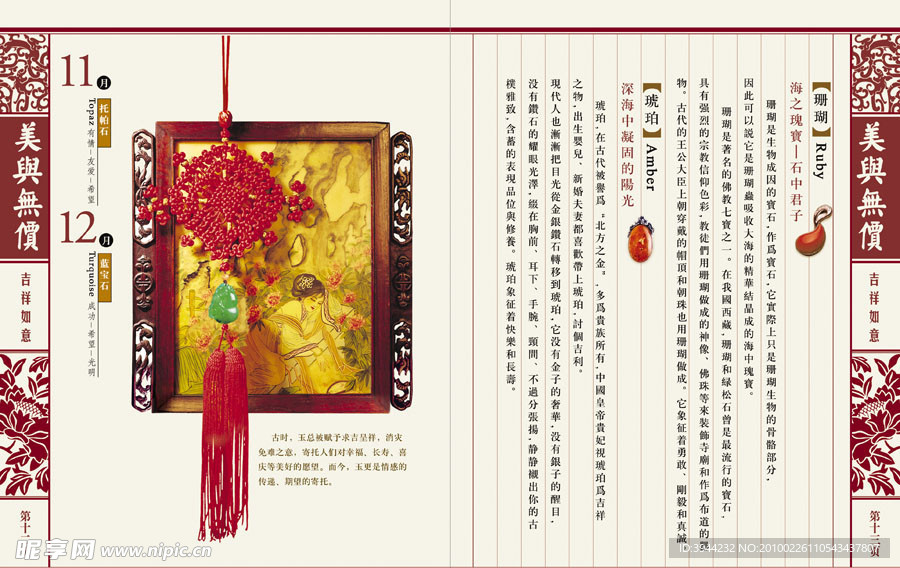 美與無價
吉祥如意
第十二
11月
托帕石
Topaz 有情-友爱-希望
12月
蓝宝石
Turquoise 成功-希望-光明
古时，玉总被赋予求吉呈祥，消灾
免难之意，寄托人们对幸福、长寿、喜
庆等美好的愿望。而今，玉更是情感的
传递、期望的寄托。
昵享网 www.nipic.cn
【珊瑚】Ruby
海之瑰寶—石中君子
珊瑚是生物成因的寶石，作爲寶石，它實際上只是珊瑚生物的骨骼部分，
因此可以説它是珊瑚蟲吸收大海的精華結晶成的海中瑰寶。
珊瑚是著名的佛教七寶之一。在我國西藏，珊瑚和緑松石曾是最流行的寶石，
具有强烈的宗教信仰色彩，教徒們用珊瑚做成的神像、佛珠等來裝飾寺廟和作爲布道的
物。古代的王公大臣上朝穿戴的帽頂和朝珠也用珊瑚做成。它象征着勇敢、剛毅和真誠
【琥珀】Amber
深海中凝固的陽光
琥珀，在古代被譽爲“北方之金”，多爲貴族所有，中國皇帝貴妃視琥珀爲吉祥
之物，出生嬰兒、新婚夫妻都喜歡帶上琥珀，討個吉利。
現代人也漸漸把目光從金銀鑽石轉移到琥珀，它没有金子的奢華，没有銀子的醒目，
没有鑽石的耀眼光澤，綴在胸前、耳下、手腕、頸間、不過分張揚，静静襯出你的古
樸雅致，含蓄的表現品位與修養。琥珀象征着快樂和長壽。
美與無價
吉祥如意
第十三页
ID:3544232 NO:20100226110543437807